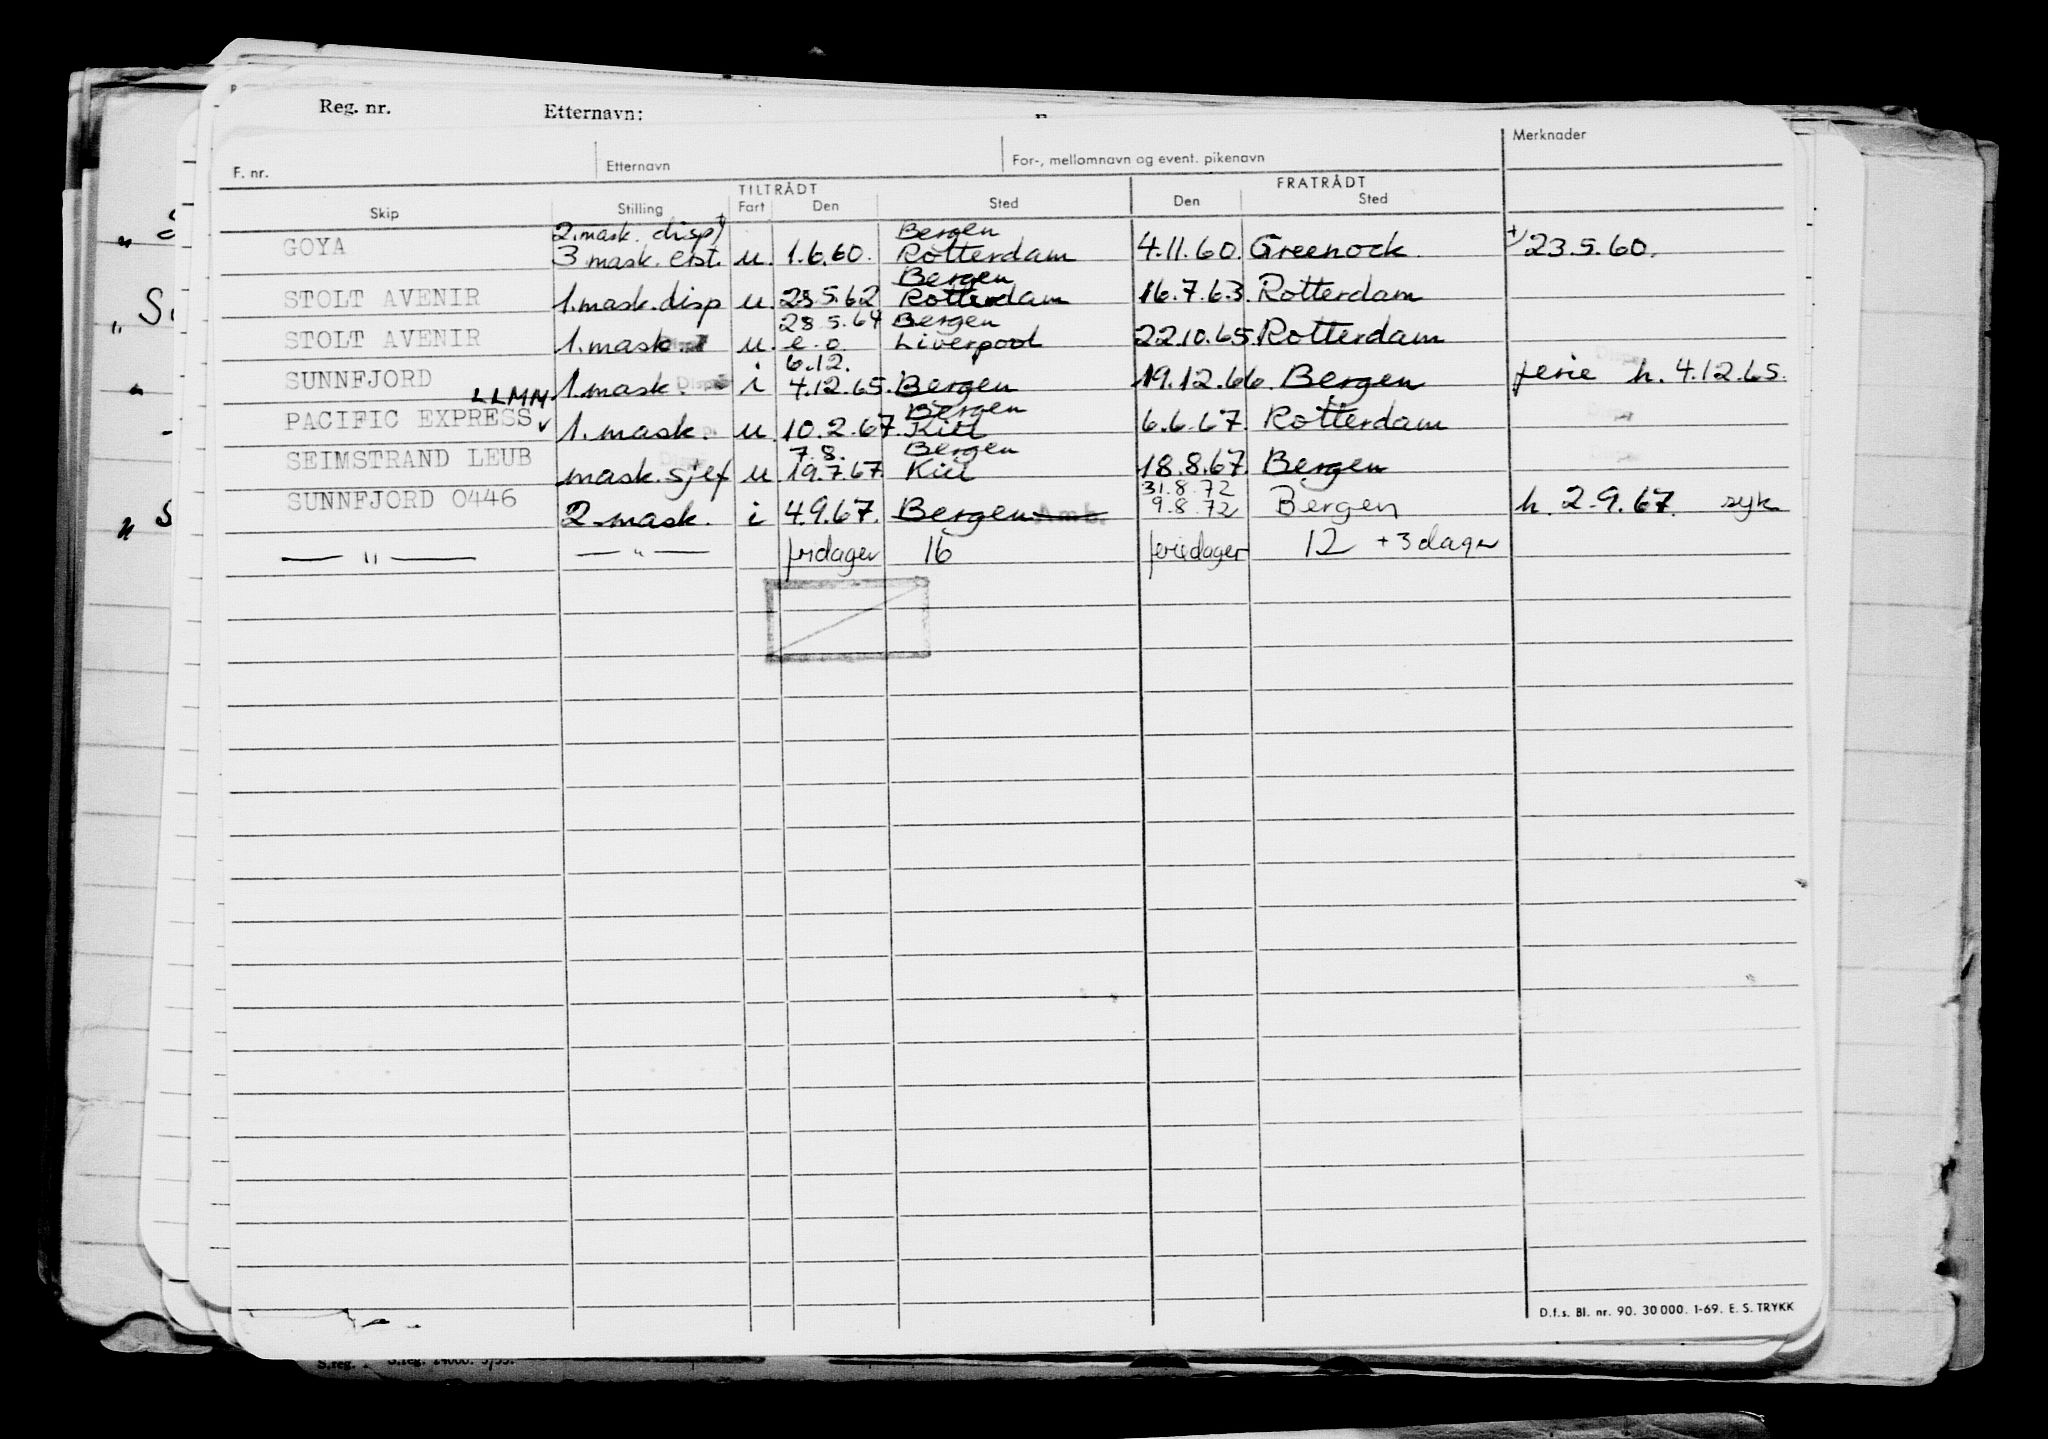 Reg. nr. Etternavn:
F. nr. Etternavn For-, mellomnavn og event. pikenavn Merknader
TILTRÅDT FRATRÅDT
Skip Stilling Fart Den Sted Den Sted
2. mask. disp Bergen
GOYA 3 mask. erst. u. 1.6.60. Rotterdam 4.11.60. Greenock. +) 23.5.60.
Bergen
STOLT AVENIR 1.mask.disp u. 28.5.62 Rotterdam 16.7.63. Rotterdam
28.5.64 Bergen
STOLT AVENIR 1.mask. u. e.o. Liverpool 22.10.65. Rotterdam
6.12.
SUNNFJORD 1.mask. Disp i 4.12.65. Bergen 19.12.66. Bergen ferie h. 4.12.65.
LLMN Bergen
PACIFIC EXPRESS 1. mask. u. 10.2.67. Kiel 6.6.67. Rotterdam
7.8. Bergen
SEIMSTRAND LEUB mask.sjef u 19.7.67. Kiel 18.8.67. Bergen
31.8.72
SUNNFJORD 0446 2.mask. i 4.9.67. Bergen Amb. 9.8.72 Bergen h. 2.9.67. syk
— " — — " — fridager 16 feriedager 12 +3 dager
D.f.s. Bl. nr. 90. 30 000. 1-69. E. S. TRYKK